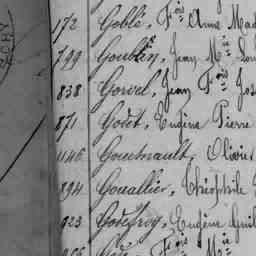 172 Goblé, Fois Anne Mad
799 Goublin, Jean Mie Lou
838 Gorvel, Jean Fois Jos
871 Godet, Eugène Pierre
1146 Gouchault, Olivier
894 Gouallier, Théophile
923 Godefroy, Eugène
Fois Mie